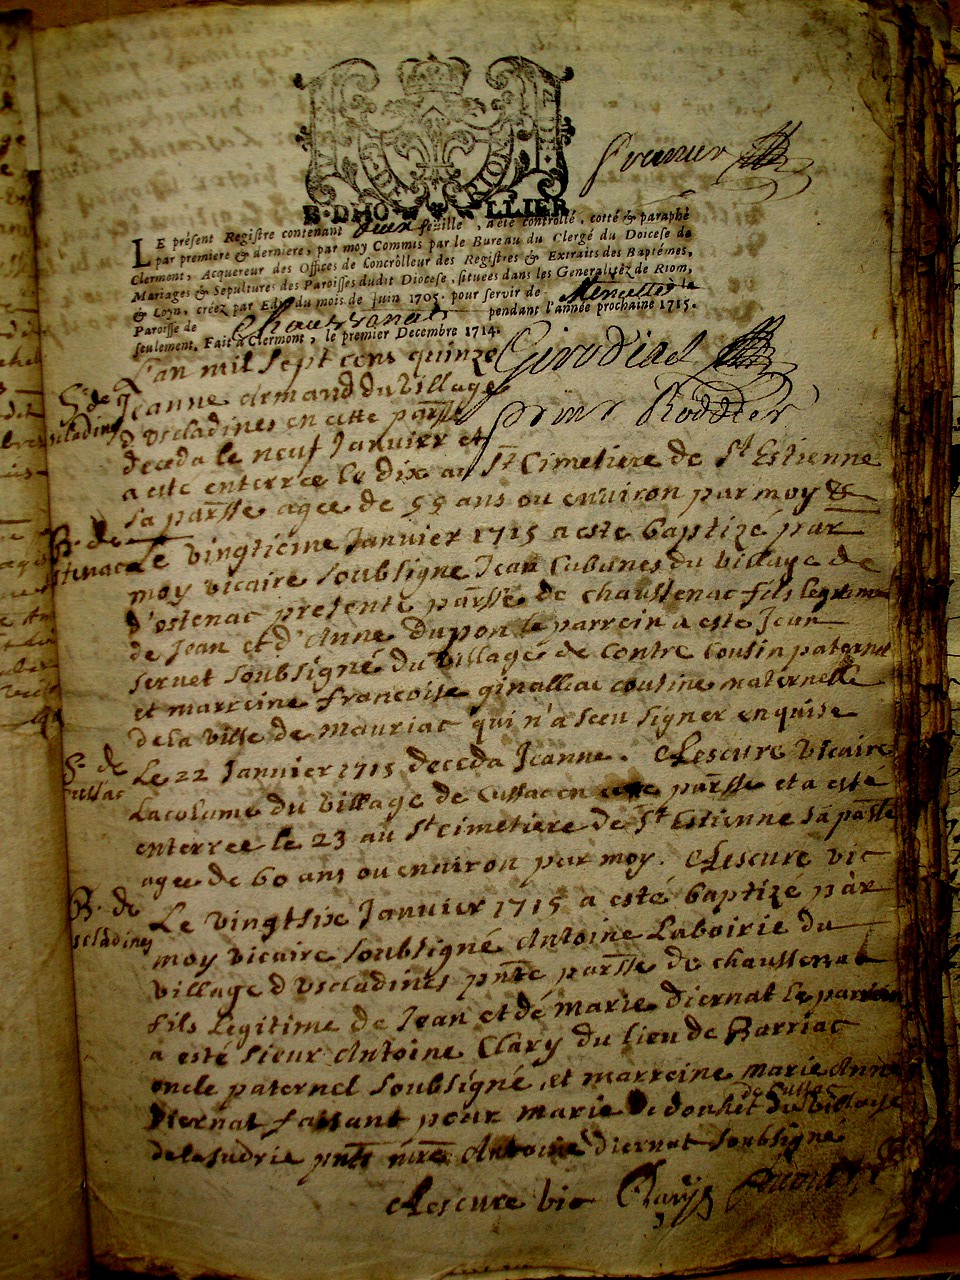 premier
B. DIO LLIER
LE présent Registre contenant deux feuille, a été controllé, cotté & paraphé
par premiere & derniere, par moy Commis par le Bureau du Clergé du Dioicese de
Clermont, Acquereur des Offices de Concrôlleur des Registres & Extraits des Baptêmes,
Mariages & Sepultures des Paroisses dudit Diocese, situées dans les Generalitéz de Riom,
& Loyn, créez par Edit du mois de Juin 1705. pour servir de la
Paroisse de Chaussenac pendant l'année prochaine 1715.
seulement. Fait à Clermont, le premier Decembre 1714.
Girodias
L'an mil sept cens quinze
S. de Jeanne Armand du village
scladines d'Uscladines en cette parsse
deceda le neuf Janvier et
a esté enterree le dix au St Cimetiere de St Estienne
sa parsse agee de 55 ans ou environ par moy &
B. de Le vingtiéme Janvier 1715 a este baptizé par
stenac moy vicaire soubsigne Jean Cabanes du village de
d'ostenac presente parsse de chaussenac fils legitime
de Jean et d'Anne dupon le parrein a este Jean
servet soubsigné du village de contre cousin paternel
et marreine francoise ginalhac cousine maternelle
de la ville de mauriac qui n'a sceu signer enquise
S. de Le 22 Janvier 1715 deceda Jeanne. Lescure vicaire
cussac Lacolume du village de Cussac en cette parsse et a este
enterree le 23 au St Cimetiere de St Estienne sa parsse
agee de 60 ans ou environ par moy. Lescure vic
B. de Le vingtsix Janvier 1715 a esté baptizé pàr
scladines moy vicaire soubsigné Antoine Laboirie du
village d'Uscladines pnte parsse de chaussenac
fils legitime de Jean et dé marie diernat le parrein
a esté sieur Antoine Clary du lieu de Barriac
oncle paternel soubsigné, et marreine marie Anne
de Cussac
Diernat faisant pour marie de douhet du village
de lasudrie Antoine diernat soubsigné
Lescure vic Clary